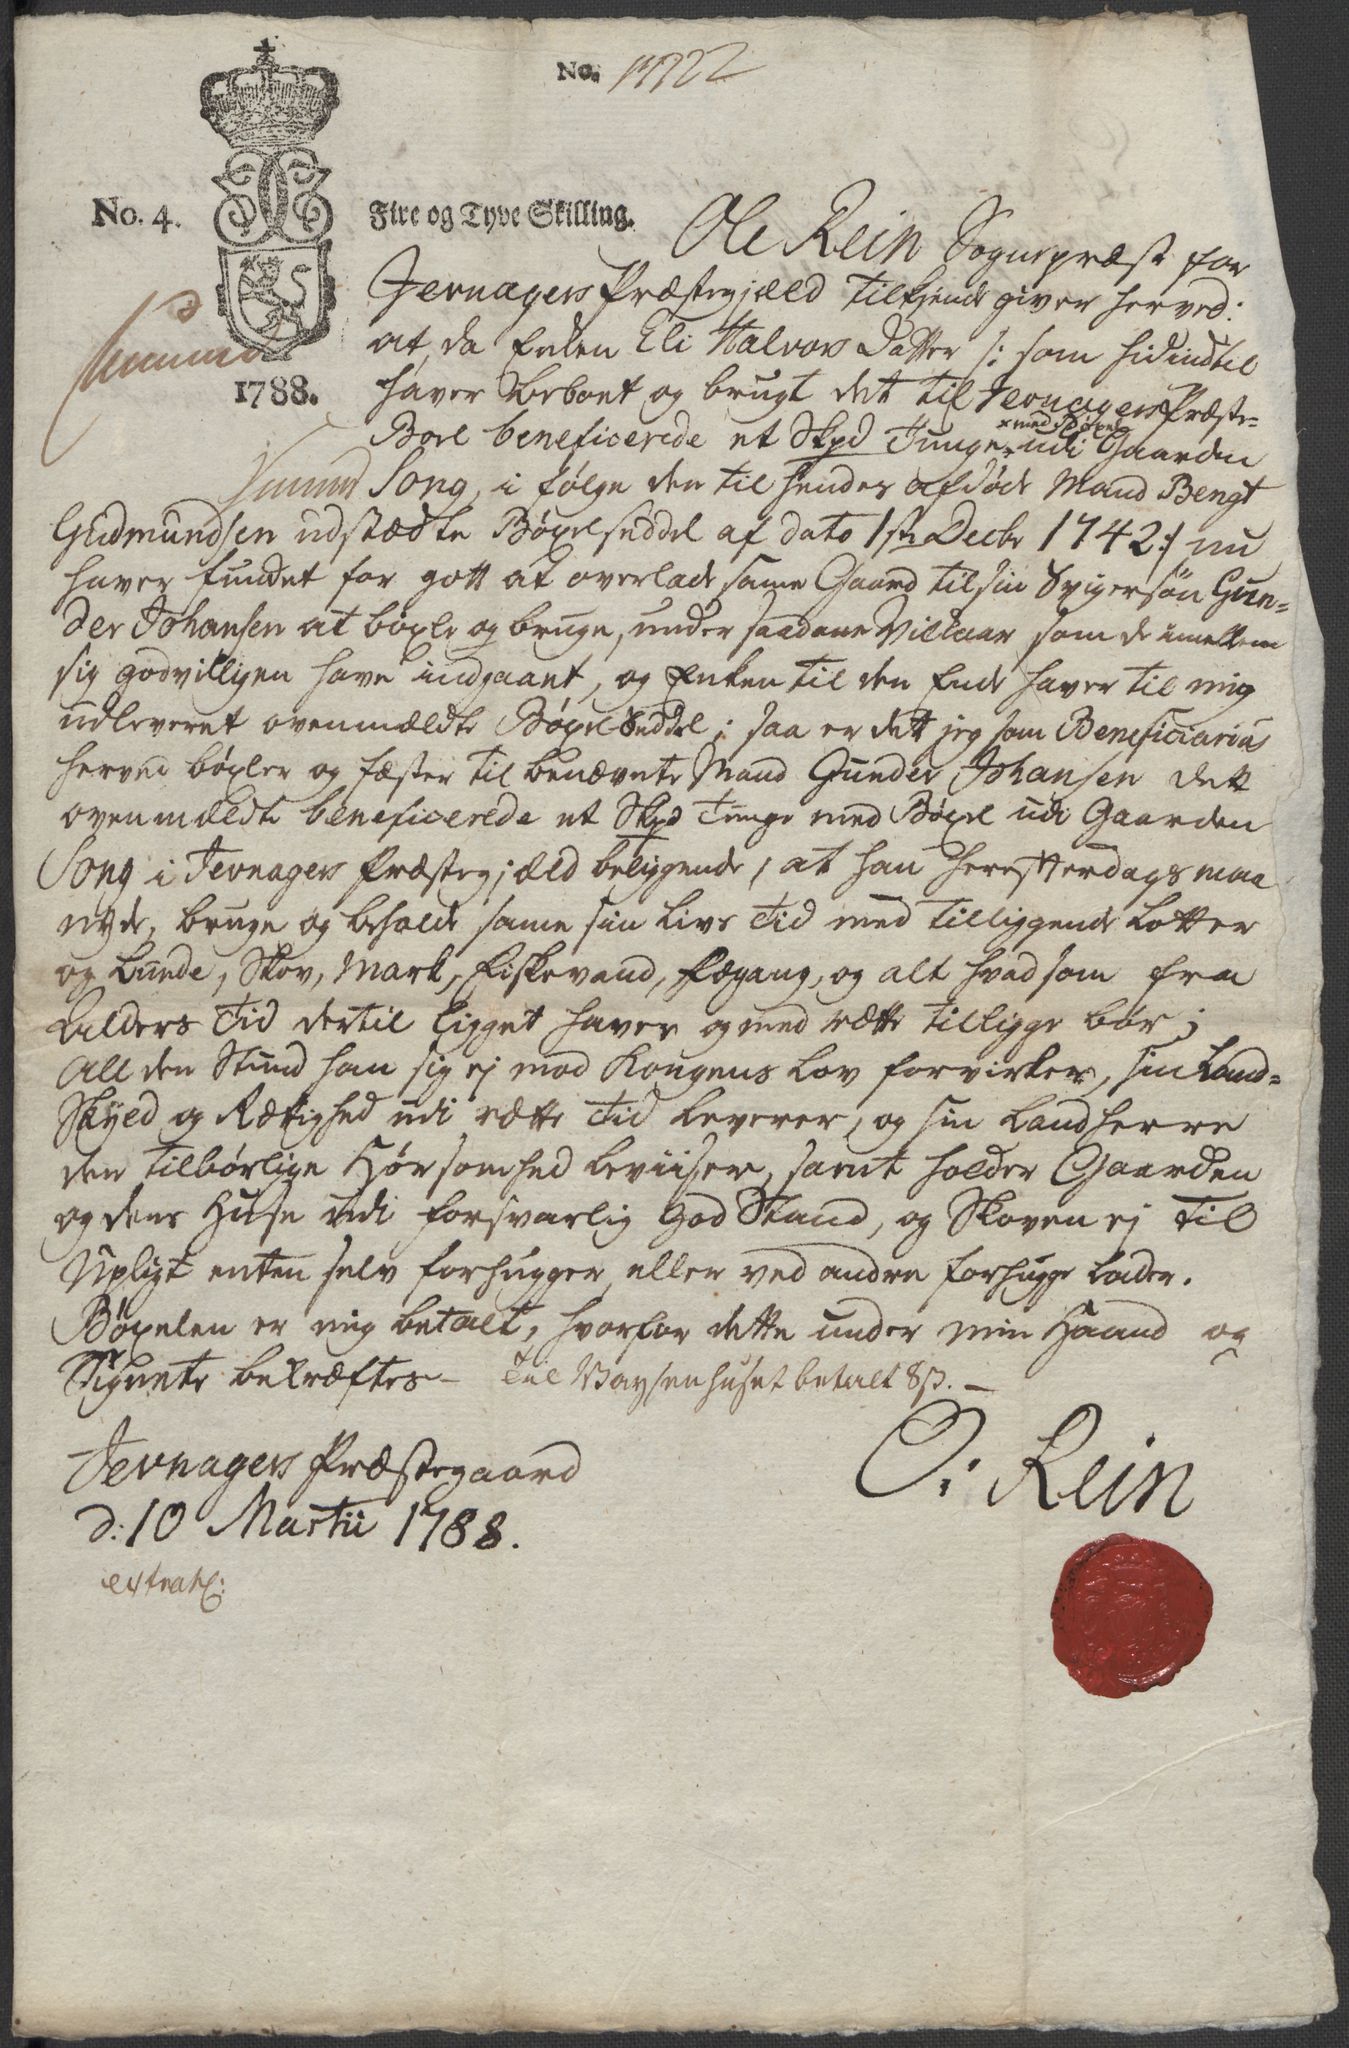 No. 1722
No. 4.
Fire og Tyve Skilling.
1788.
Ole Rein Sognepræst for
Jevnagers Præstegjæld tilkjende giver herved:
at, da Enken Eli Halvors Datter /: som hidindtil
haver beboet og brugt det til Jevnagers Præste-
Boel beneficerede et Skpd Tunge × udi Gaarden
× med Bøxel
Song, i følge den til hendes afdøde Mand Bengt
Gudmundsen udstædte Bøxelseddel af dato 1ste Decbr 1742:/ nu
haver fundet for gott at overlade same Gaard til sin Svigersøn Gun-
der Johansen at bøxle og bruge, under saadane Vilkaar som de imellem
sig godvilligen have indgaaet, og Enken til den Ende haver til mig
udleveret ovenmældte Bøxel-Seddel; saa er det jeg som Beneficiarius
herved bøxler og fæster til benævnte Mand Gunder Johansen dett
ovenmældte beneficerede et Skpd Tunge med Bøxel udi Gaarden
Song i Jevnagers Præstegjæld beliggende, at han herefterdags maa
nyde, bruge og beholde same sin Livs Tid med tilliggende Lotter
og Lunde, Skov, Mark, Fiskevand, Fægang, og alt hvad som fra
Alders Tid dertil ligget haver og med rætte tilligge bør;
All den Stund han sig ej mod Kongens Lov forvirker, sin Land-
Skyld og Rættighed udi rætte Tid leverer, og sin Landherre
den tilbørlige Hørsomhed beviiser, samt holder Gaarden
og dens Huse udi forsvarlig god Stand, og Skoven ej til
Upligt enten selv forhugger, eller ved andre forhugge lader.
Bøxelen er mig betalt, hvorfor dette under min Haand og
Signete bekræftes – Til Vaysenhuset betalt 8 ß. –
Jevnagers Præstegaard
d: 10 Martii 1788.
O: Rein